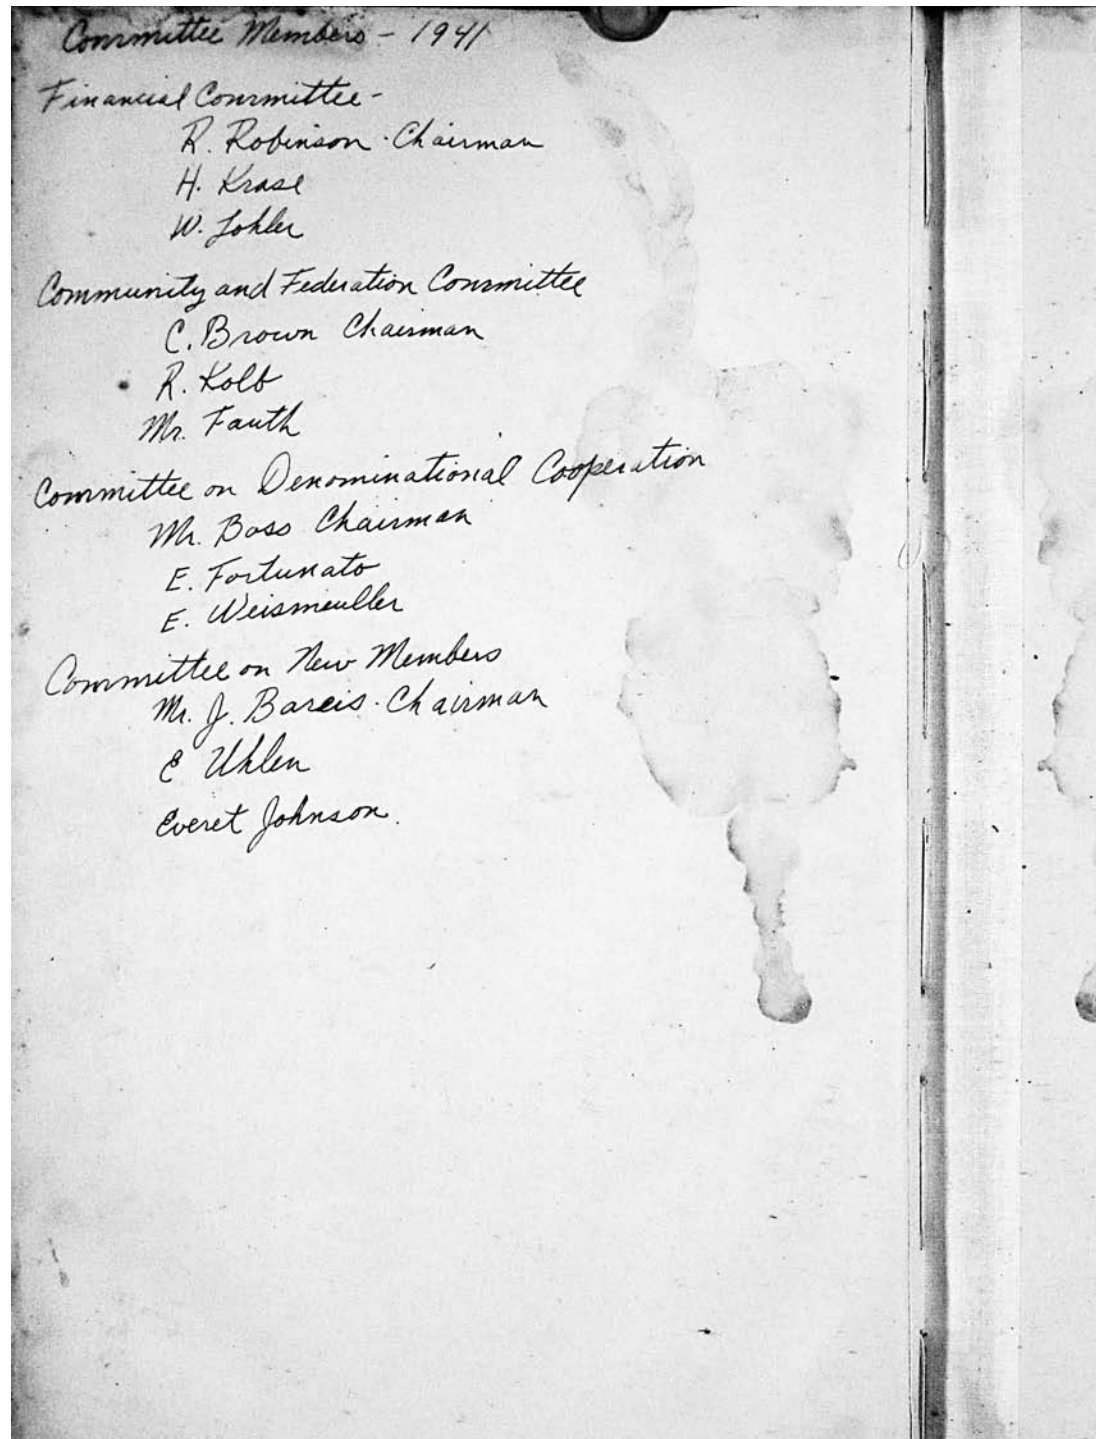 Committee Members - 1941
Financial Committee -
R. Robinson - Chairman
H. Krase
W. Lohler
Community and Federation Committee
C. Brown Chairman
R. Kolb
Mr. Fauth
Committee on Denominational Cooperation
Mr. Boss Chairman
E. Fortunato
E. Weismeuller
Committee on New Members
Mr. J. Bareis - Chairman
E Uhlen
Everet Johnson.